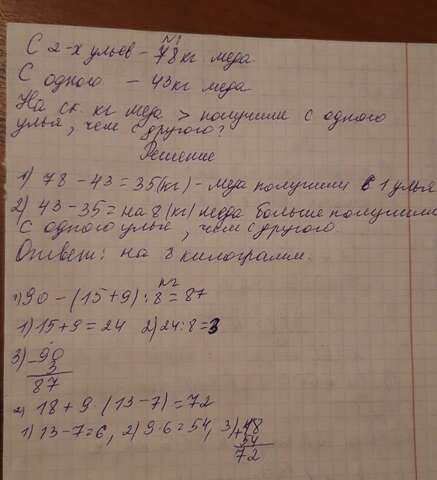 №1
С 2-х ульев - 78 кг меда
С одного - 43 кг меда
На ск. кг меда > получили с одного
улья, чем с другого?
Решение
1) 78 - 43 = 35 (кг) - меда получили с 1 улья
2) 43 - 35 = на 8 (кг) меда больше получили
с одного улья, чем с другого.
Ответ: на 8 килограмм.
№2
1) 90 - (15 + 9) : 8 = 87
1) 15 + 9 = 24 2) 24 : 8 = 3
3) - 90
3
87
2) 18 + 9 · (13 - 7) = 72
1) 13 - 7 = 6, 2) 9 · 6 = 54, 3) + 18
54
72